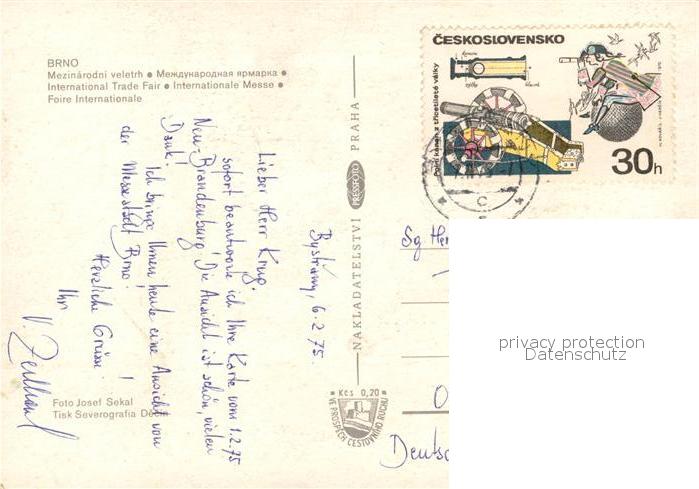 BRNO
Mezinárodní veletrh ● Международная ярмарка ●
International Trade Fair ● Internationale Messe ●
Foire Internationale
ČESKOSLOVENSKO
Polní kanón z třicetileté války
30h
Bystřany, 6.2.75.
Lieber Herr Krug,
sofort beantworte ich Ihre Karte vom 1.2.75
Neu-Brandenburg! Die Ansicht ist schön, vielen
Dank!
Ich bringe Ihnen heute eine Ansicht von
der Messestadt Brno!
Herzliche Grüsse!
Ihr
V.
NAKLADATELSTVÍ PRESSFOTO PRAHA
Kčs 0,20
VE PROSPĚCH CESTOVNÍHO RUCHU
Foto Josef Sekal
Tisk Severografia Děčín
C
Sg Her
O
Deutsc
privacy protection
Datenschutz